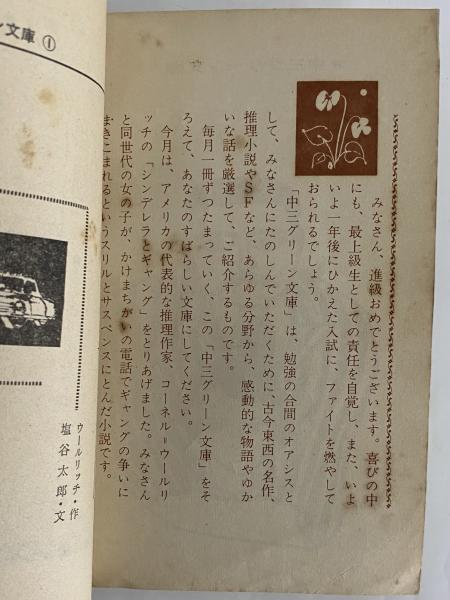 みなさん、進級おめでとうございます。喜びの中
にも、最上級生としての責任を自覚し、また、いよ
いよ一年後にひかえた入試に、ファイトを燃やして
おられるでしょう。
「中三グリーン文庫」は、勉強の合間のオアシスと
して、みなさんにたのしんでいただくために、古今東西の名作、
推理小説やSFなど、あらゆる分野から、感動的な物語やゆか
いな話を厳選して、ご紹介するものです。
毎月一冊ずつたまっていく、この「中三グリーン文庫」をそ
ろえて、あなたのすばらしい文庫にしてください。
今月は、アメリカの代表的な推理作家、コーネル＝ウールリ
ッチの「シンデレラとギャング」をとりあげました。みなさん
と同世代の女の子が、かけまちがいの電話でギャングの争いに
まきこまれるというスリルとサスペンスにとんだ小説です。
ウールリッチ・作
塩谷太郎・文
ン文庫 ①